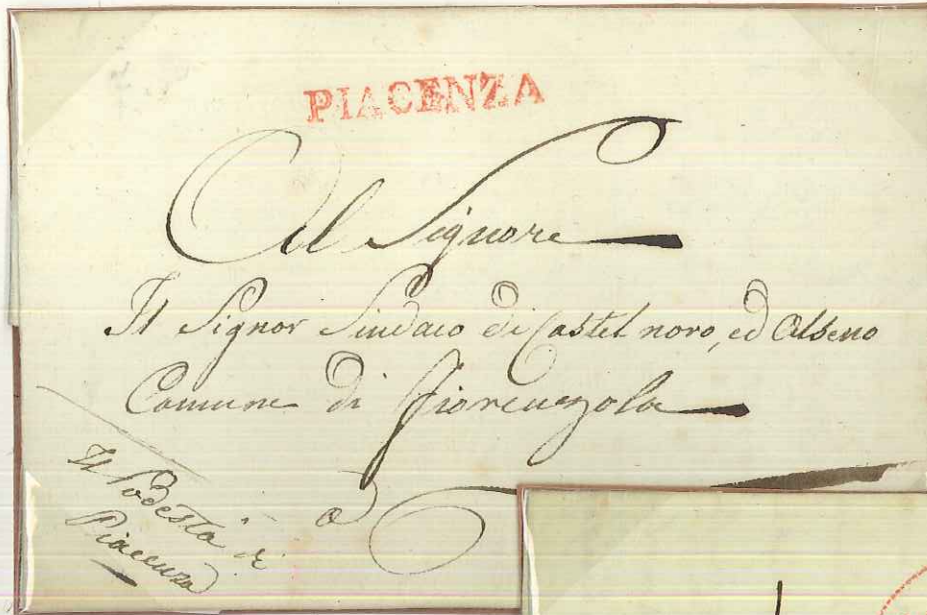 PIACENZA
Al Signore
Il Signor Sindaco di Castel novo, ed Alseno
Comune di Fiorenzola
Il Podestà di
Piacenza